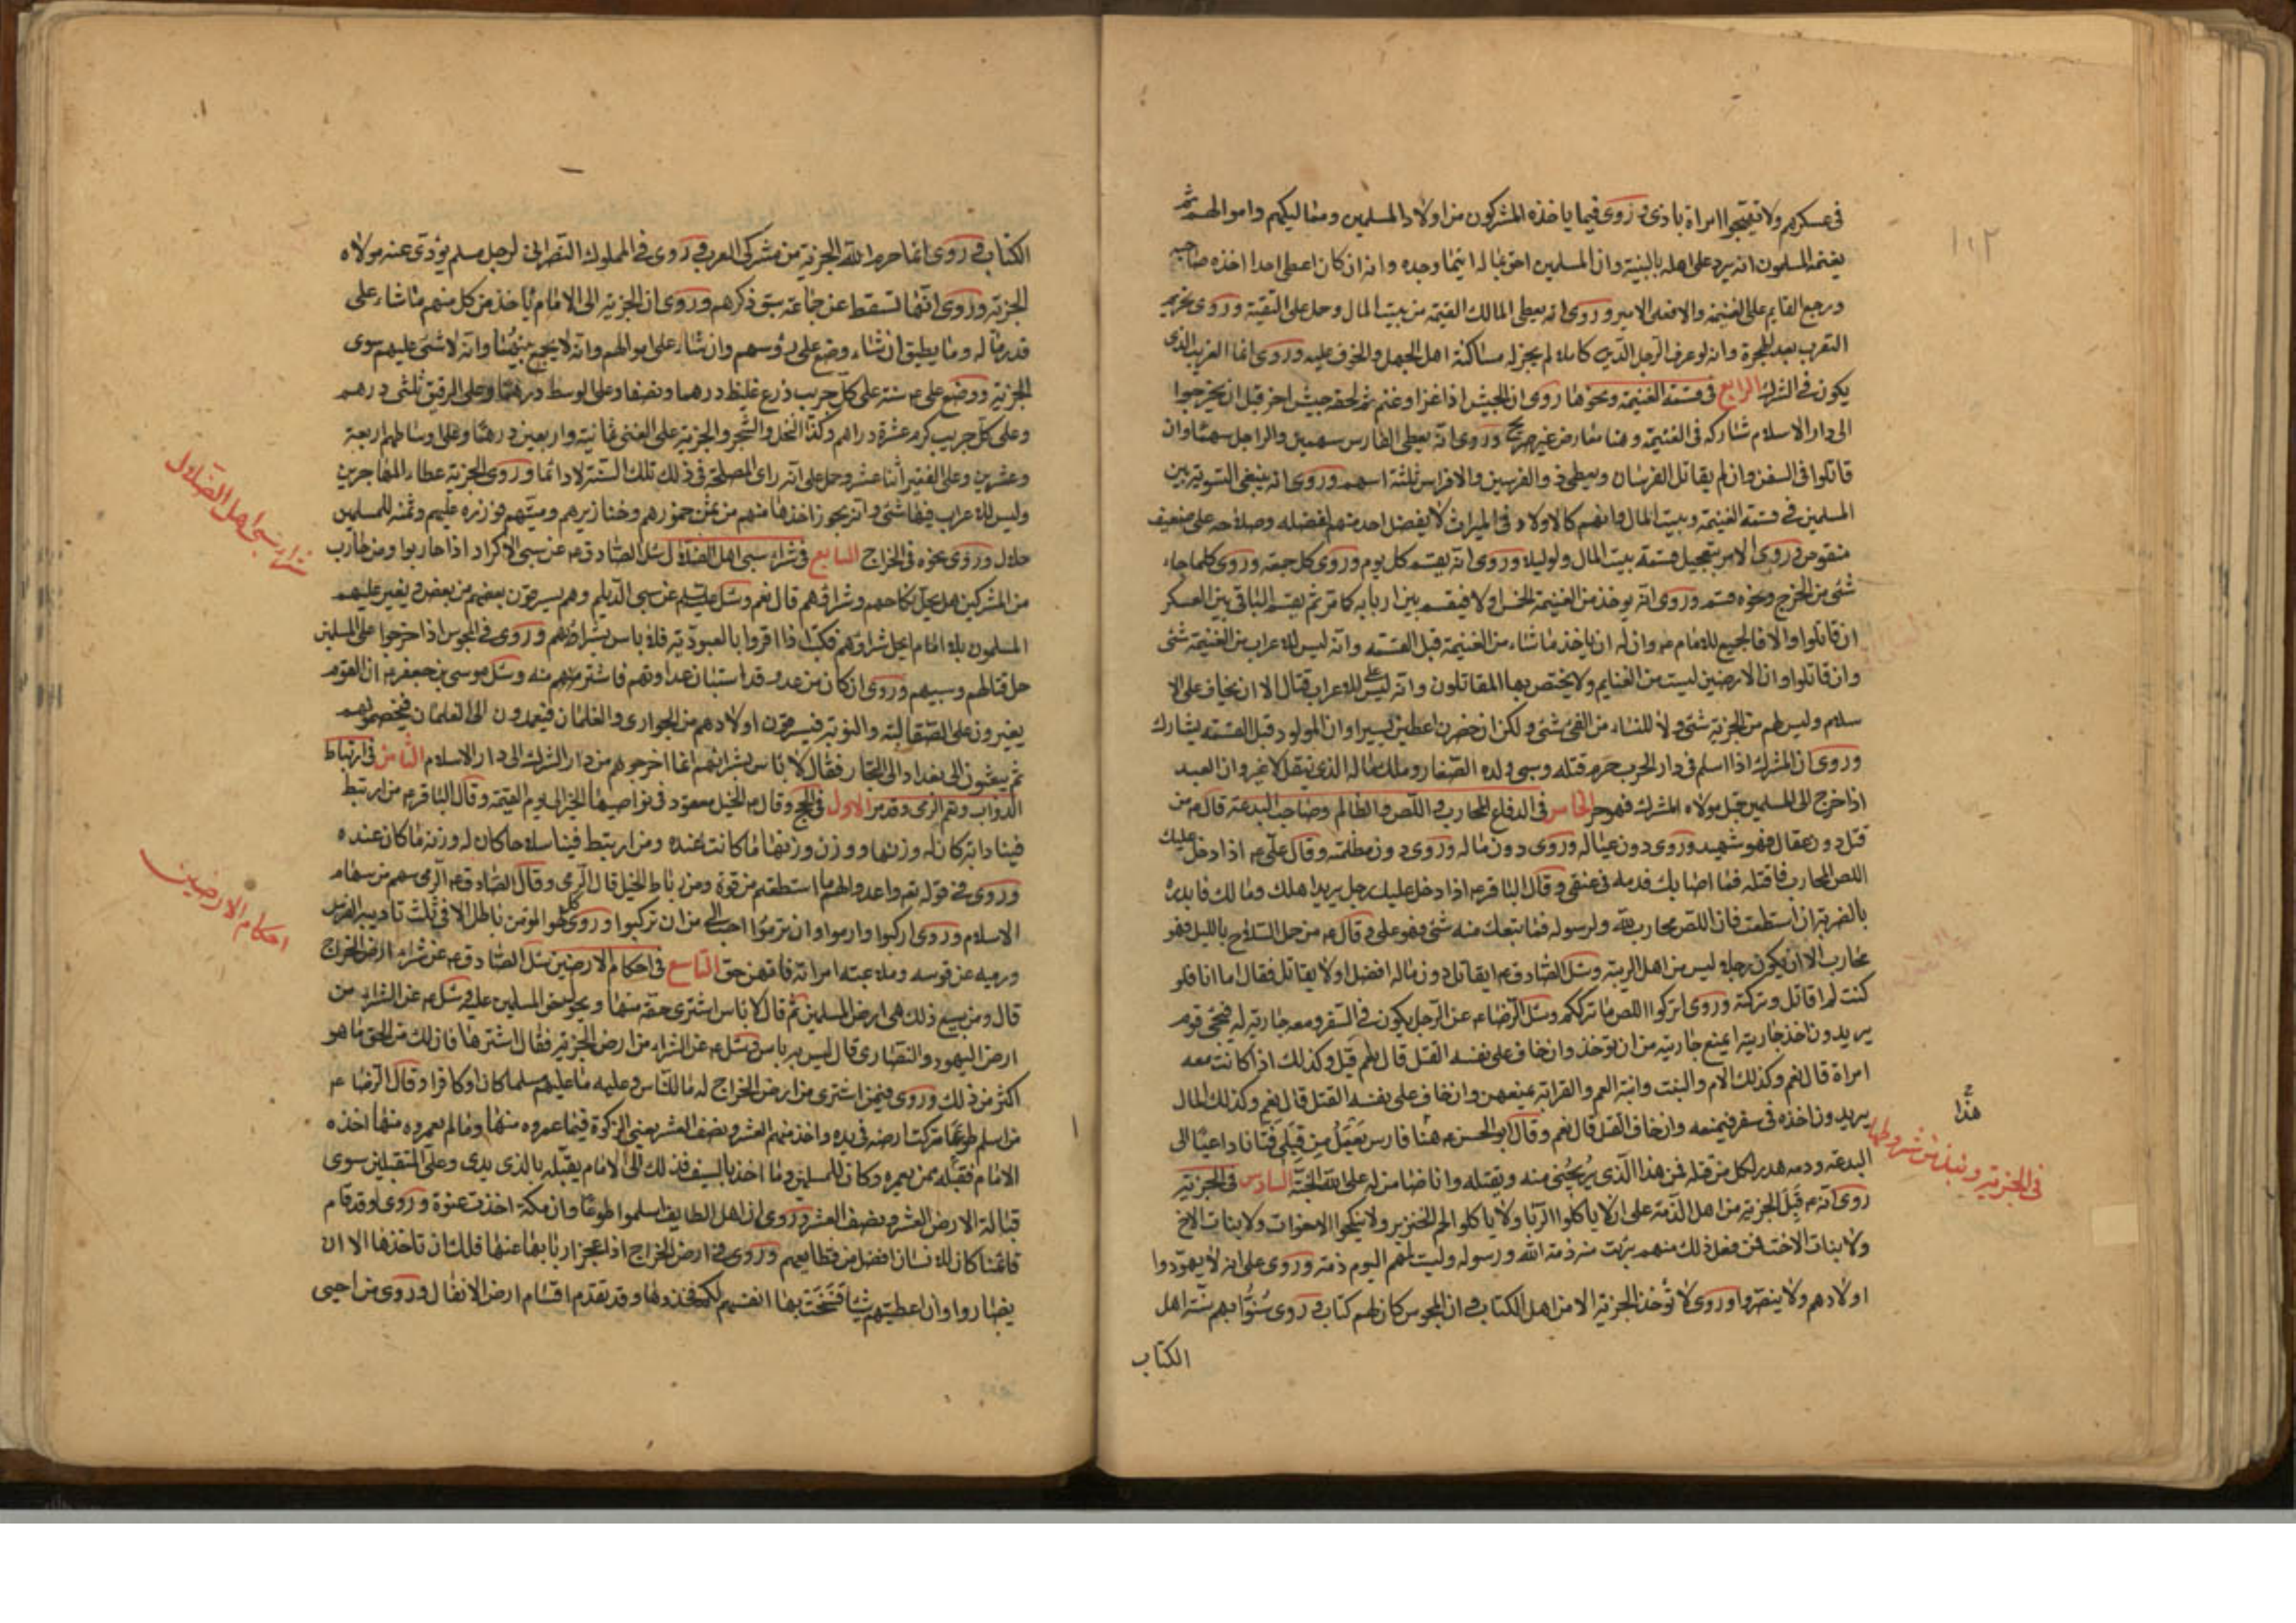 ١١٢
في عسكرهم ولا تهيجوا امراة باذى و روى فيما ياخذه المشركون من اولاد المسلمين ومماليكهم واموالهم ثم
يغنمه المسلمون انه يرد على اهله بالبينة وان المسلمين احق بماله اينما وجده وانه ان كان اعطى احدا اخذه صاحبه
ورجع القايم على الغنيمة والا فعلى الامير وروى انه يعطى المالك القيمة من بيت المال وحمل على التقية وروى تحريم
التعرب بعد الهجرة وانه لو عرف الرجل الدين كاملا لم يجز له مساكنة اهل الجهل والخوف عليه وروى انما الغريب الذى
يكون في الشرك الرابع في قسمة الغنيمة ونحوها روى ان الجيش اذا غزا وغنم ثم لحقه جيش اخر قبل ان يخرجوا
الى دار الاسلام شاركه في الغنيمة وهنا معارض غير صريح وروى انه يعطى الفارس سهمين والراجل سهما وان
قاتلوا في السفن وان لم يقاتل الفرسان ويعطى ذو الفرسين والافراس ثلثة اسهم وروى انه ينبغى التسوية بين
المسلمين في قسمة الغنيمة وبيت المال وانهم كالاولاد في الميراث لا يفضل احد منهم لفضله وصلاحه على ضعيف
منقوص وروى الامر بتعجيل قسمة بيت المال ولو ليلا وروى انه يقسم كل يوم وروى كل جمعة وروى كلما جاء
شئ من الخرج ونحوه قسم وروى انه يوخذ من الغنيمة الخمس اولا فيقسم بين اربابه كما مر ثم يقسم الباقى بين العسكر
ان قاتلوا والا فالجميع للامام ع وان له ان ياخذ ما شاء من الغنيمة قبل القسمة وانه ليس للاعراب من الغنيمة شئ
وان قاتلوا وان الارضين ليست من الغنايم ولا يختص بها المقاتلون وانه ليس على للاعراب قتال الا ان يخاف على الا
سلام وليس لهم من الجزية شئ ولا للنساء من الفئ شئ ولكن ان حضرن اعطين يسيرا وان المولود قبل القسمة يشارك
وروى ان المشرك اذا اسلم في دار الحرب حرم قتله وسبى ولده الصغار وملك ماله الذى ينتقل لا غير وان العبد
اذا خرج الى المسلمين قبل مولاه المشرك فهو حر الخامس في الدفاع المحارب و اللص والظالم وصاحب البدعة قال ع من
قتل دون عقال فهو شهيد وروى دون عياله وروى دون ماله وروى دون مظلمته وقال على ع اذا دخل عليك
اللص المحارب فاقتله فما اصابك فدمه في عنقى وقال الباقر ع اذا دخل عليك رجل يريد اهلك ومالك فابدره
بالضربة ان استطعت فان اللص محارب لله ولرسوله فما تبعك منه شئ فهو على وقال ع من حمل السلاح بالليل فهو
محارب الا ان يكون رجلا ليس من اهل الريبة وسئل الصادق ع ايقاتل دون ماله افضل او لا يقاتل فقال اما انا فلو
كنت لم اقاتل وتركته وروى اتركوا اللص ما ترككم وسئل الرضا ع عن الرجل يكون في السفر ومعه جارية له فيجئ قوم
يريدون اخذ جاريته ايمنع جاريته من ان توخذ وان خاف على نفسه القتل قال نعم قيل وكذلك اذا كانت معه
امراة قال نعم وكذلك الام والبنت وابنة العم والقرابة يمنعهن وان خاف على نفسه القتل قال نعم وكذلك المال
يريدون اخذه في سفر فيمنعه وان خاف القتل قال نعم وقال ابو الحسن ع هذا فارس يعمل من قبلى فتانا داعيا الى
البدعة ودمه هدر لكل من قتله فمن هذا الذى يريحنى منه ويقتله وانا ضامن له على الله الجنة السادس في الجزية
روى انه ع قبل الجزية من اهل الذمة على ان لا ياكلوا الربا ولا ياكلوا لحم الخنزير ولا ينكحوا الاخوات ولا بنات الاخ
ولا بنات الاخت فمن فعل ذلك منهم برئت منه ذمة الله ورسوله وليست لهم اليوم ذمة وروى على ان لا يهودوا
اولادهم ولا ينصروا وروى لا تؤخذ الجزية الا من اهل الكتاب و ان المجوس كان لهم كتاب وروى سنوا بهم سنة اهل
الكتاب
هذا
في الجزية ونبذ من شروطها
الكتاب و روى انما حرم الله الجزية من مشركى العرب و روى في المملوك النصرانى لرجل مسلم يؤدى عنه مولاه
الجزية وروى انها تسقط عن جماعة سبق ذكرهم وروى ان الجزية الى الامام ياخذ من كل منهم ما شاء على
قدر ماله وما يطيق ان شاء وضع على رؤسهم وان شاء على اموالهم وانه لا يجمع بينهما وانه لا شئ عليهم سوى
الجزية ووضع على ع سنة على كل جريب زرع غليظ درهما ونصفا وعلى الوسط درهما وعلى الرقيق ثلثى درهم
وعلى كل جريب كرم عشرة دراهم وكذا النخل والشجر والجزية على الغنى ثمانية واربعين درهما وعلى اوساطهم اربعة
وعشرين وعلى الفقير اثنا عشر وحمل على انه راى المصلحة في ذلك تلك السنة لا دائما وروى الجزية عطاء المهاجرين
وليس للاعراب فيها شئ وانه يجوز اخذها منهم من ثمن خمورهم وخنازيرهم وميتهم فوزره عليهم وثمنه للمسلمين
حلال وروى نحوه في الخراج السابع في شراء سبى اهل الضلال سئل الصادق ع عن سبى الاكراد اذا حاربوا ومن حارب
من المشركين هل يحل نكاحهم وشراؤهم قال نعم وسئل عليه السلم عن سبى الديلم وهم يسرقون بعضهم من بعض ويغير عليهم
المسلمون بلا امام ايحل شراؤهم فكتب اذا اقروا بالعبودية فلا باس بشرائهم وروى في المجوس اذا خرجوا على المسلمين
حل قتالهم وسبيهم وروى ان كان من عدو قد استبان عداوتهم فاشتر منهم منه وسئل موسى بن جعفر ع ان القوم
يغيرون على الصقالبة والنوبة فيسرقون اولادهم من الجوارى والغلمان فيعمدون الى الغلمان فيخصونهم
ثم يبعثون الى بغداد الى التجار فقال لا باس بشرائهم انما اخرجوهم من دار الشرك الى دار الاسلام الثامن في ارتباط
الدواب وتعلم الرمى وقد مر الاول في الحج وقال ع الخيل معقود في نواصيها الخير الى يوم القيمة وقال الباقر ع من ارتبط
فينا دابة كان له وزنها ووزن وزنها ما كانت عنده ومن ارتبط فينا سلاحا كان له وزنه ما كان عنده
وروى في قوله تعم واعدوا لهم ما استطعتم من قوة ومن رباط الخيل قال الرمى وقال الصادق ع الرمى سهم من سهام
الاسلام وروى اركبوا وارموا وان ترموا احب الى من ان تركبوا وروى كل لهو المؤمن باطل الا في ثلث تاديبه الفرس
ورميه عن قوسه وملاعبته امراته فانهن حق التاسع في احكام الارضين سئل الصادق ع عن شراء ارض الخراج
قال ومن يبيع ذلك هى ارض المسلمين ثم قال لا باس اشترى حقه منها ويحول حق المسلمين عليه وسئل ع عن الشراء من
ارض اليهود والنصارى قال ليس به باس وسئل ع عن الشراء من ارض الجزية فقال اشترها فان لك من الحق ما هو
اكثر من ذلك وروى فيمن اشترى من ارض الخراج له ما للناس وعليه ما عليهم مسلما كان او كافرا وقال الرضا ع
من اسلم طوعا تركت ارضه في يده واخذ منهم العشر ونصف العشر يعنى الزكوة فيما عمروه منها وما لم يعمروه منها اخذه
الامام فقبله ممن يعمره وكان للمسلمين وما اخذ بالسيف فذلك الى الامام يقبله بالذى يرى وعلى المتقبلين سوى
قبالة الارض العشر ونصف العشر وروى ان اهل الطايف اسلموا طوعا وان مكة اخذت عنوة وروى لو قد قام
قائمنا كان للانسان افضل من قطايعهم وروى في ارض الخراج اذا عجز اربابها عنها فلك ان تاخذها الا ان
يضاروا وان اعطيتهم شيا فسخت بها انفسهم لكم فخذوها وقد تقدم اقسام ارض الانفال وروى من احيى
شراء سبى اهل الضلال
احكام الارضين